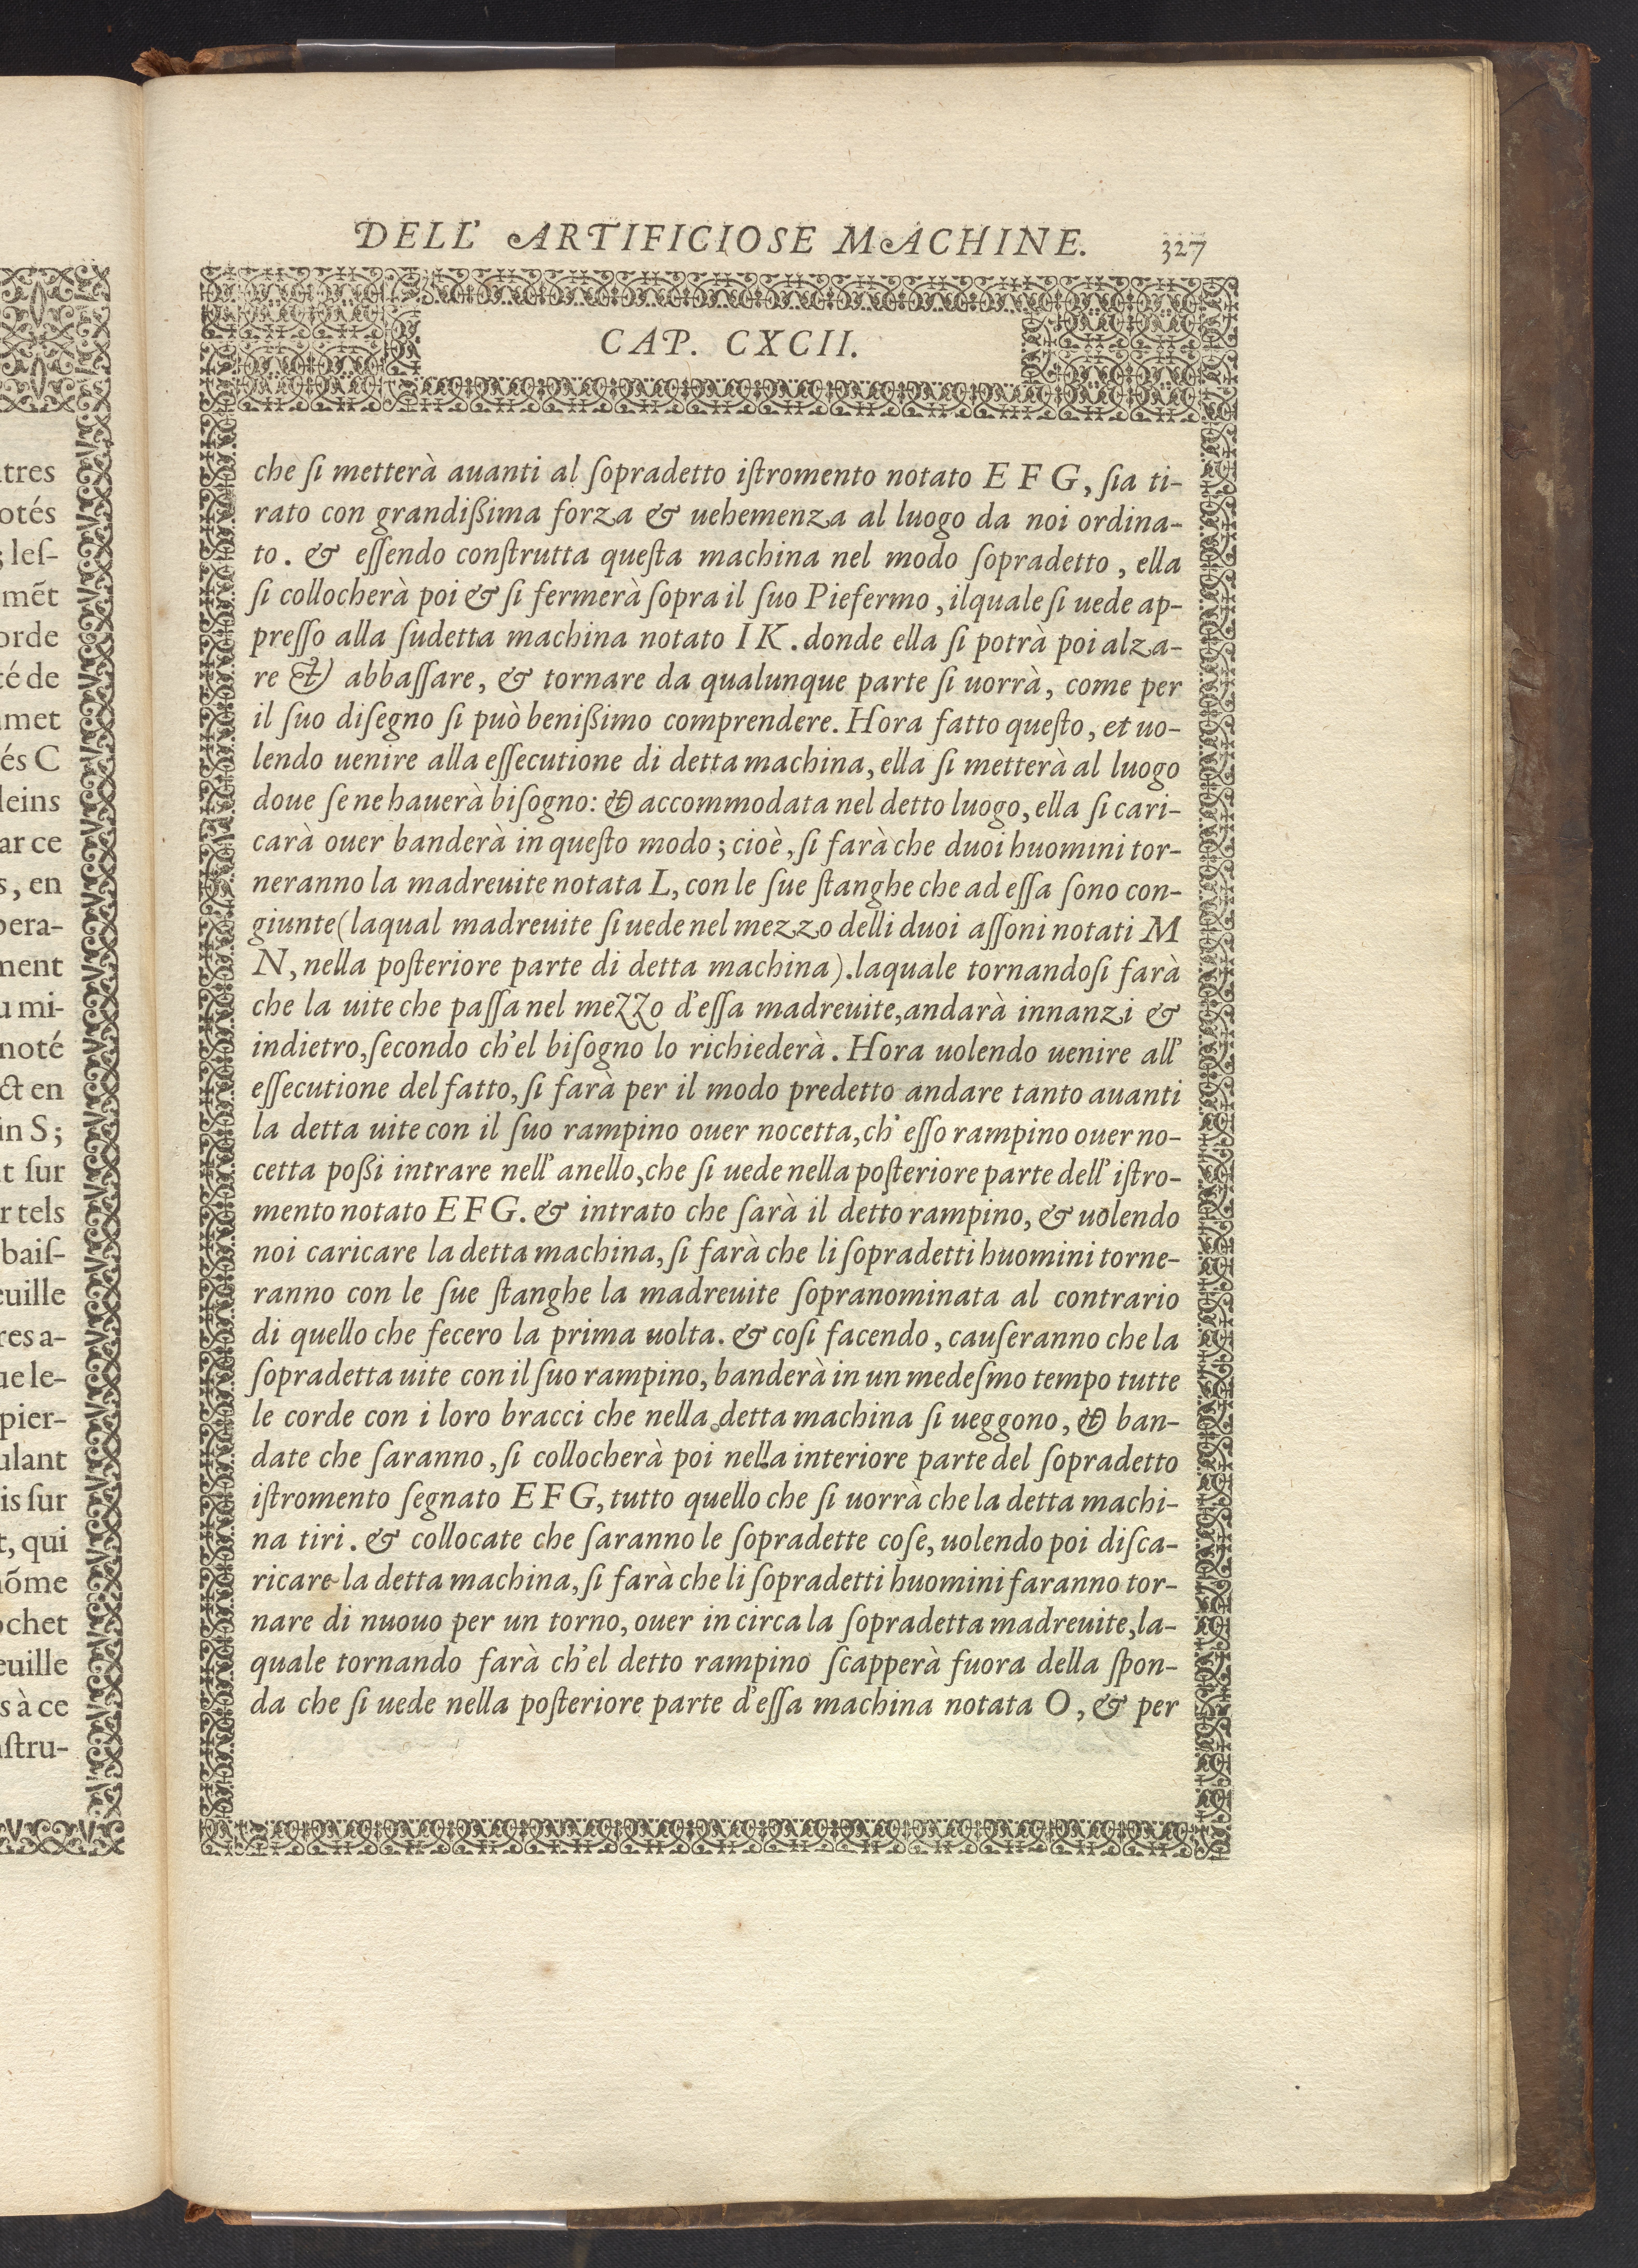 tres
otés
; leſ-
mẽt
orde
té de
met
és C
leins
ar ce
s, en
pera-
ment
u mi-
noté
ct en
in S;
t ſur
r tels
baiſ-
euille
res a-
ue le-
pier-
ulant
is ſur
t, qui
hõme
ochet
euille
s à ce
nſtru-
DELL' ARTIFICIOSE MACHINE. 327
CAP. CXCII.
che ſi metterà auanti al ſopradetto iſtromento notato E F G, ſia ti-
rato con grandißima forza & uehemenza al luogo da noi ordina-
to. & eſſendo conſtrutta queſta machina nel modo ſopradetto, ella
ſi collocherà poi & ſi fermerà ſopra il ſuo Piefermo, ilquale ſi uede ap-
preſſo alla ſudetta machina notato I K. donde ella ſi potrà poi alza-
re & abbaſſare, & tornare da qualunque parte ſi uorrà, come per
il ſuo diſegno ſi può benißimo comprendere. Hora fatto queſto, et uo-
lendo uenire alla eſſecutione di detta machina, ella ſi metterà al luogo
doue ſe ne hauerà biſogno: & accommodata nel detto luogo, ella ſi cari-
carà ouer banderà in queſto modo; cioè, ſi farà che duoi huomini tor-
neranno la madreuite notata L, con le ſue ſtanghe che ad eſſa ſono con-
giunte (laqual madreuite ſi uede nel mezzo delli duoi aſſoni notati M
N, nella poſteriore parte di detta machina). laquale tornandoſi farà
che la uite che paſſa nel mezzo d'eſſa madreuite, andarà innanzi &
indietro, ſecondo ch'el biſogno lo richiederà. Hora uolendo uenire all'
eſſecutione del fatto, ſi farà per il modo predetto andare tanto auanti
la detta uite con il ſuo rampino ouer nocetta, ch' eſſo rampino ouer no-
cetta poßi intrare nell' anello, che ſi uede nella poſteriore parte dell' iſtro-
mento notato E F G. & intrato che ſarà il detto rampino, & uolendo
noi caricare la detta machina, ſi farà che li ſopradetti huomini torne-
ranno con le ſue ſtanghe la madreuite ſopranominata al contrario
di quello che fecero la prima uolta. & coſi facendo, cauſeranno che la
ſopradetta uite con il ſuo rampino, banderà in un medeſmo tempo tutte
le corde con i loro bracci che nella detta machina ſi ueggono, & ban-
date che ſaranno, ſi collocherà poi nella interiore parte del ſopradetto
iſtromento ſegnato E F G, tutto quello che ſi uorrà che la detta machi-
na tiri. & collocate che ſaranno le ſopradette coſe, uolendo poi diſca-
ricare la detta machina, ſi farà che li ſopradetti huomini faranno tor-
nare di nuouo per un torno, ouer in circa la ſopradetta madreuite, la-
quale tornando farà ch'el detto rampino ſcapperà fuora della ſpon-
da che ſi uede nella poſteriore parte d'eſſa machina notata O, & per